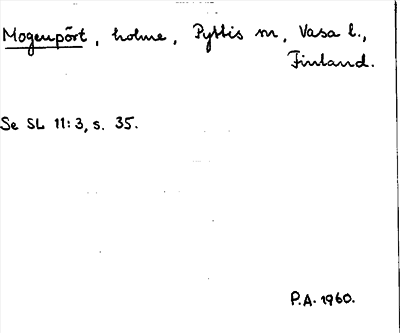 Mogenpört, holme, Pyttis sn, Vasa l.,
Finland.
Se SL 11:3, s. 35.
P.A. 1960.